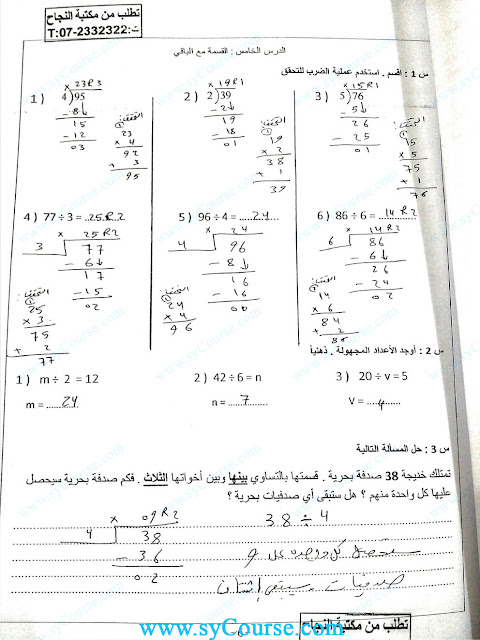 تطلب من مكتبة النجاح
ت:T:07-2332322
الدرس الخامس : القسمة مع الباقي
س 1 : اقسم . استخدم عملية الضرب للتحقق
1 ) 4)95 23R3
- 8↓
15
- 12
03
التحقق:
23
× 4
92
+ 3
95
2 ) 2)39 19R1
- 2↓
19
- 18
01
التحقق:
19
× 2
38
+ 1
39
3 ) 5)76 15R1
- 5↓
26
- 25
01
التحقق:
15
× 5
75
+ 1
76
4 ) 77 ÷ 3 = 25R2
25R2
3 77
- 6↓
17
- 15
02
التحقق:
25
× 3
75
+ 2
77
5 ) 96 ÷ 4 = 24
24
4 96
- 8↓
16
- 16
00
التحقق:
24
× 4
96
6 ) 86 ÷ 6 = 14R2
14R2
6 86
- 6↓
26
- 24
02
التحقق:
14
× 6
84
+ 2
86
س 2 : أوجد الأعداد المجهولة . ذهنياً
1 ) m ÷ 2 = 12
m = 24
2 ) 42 ÷ 6 = n
n = 7
3 ) 20 ÷ v = 5
V = 4
س 3 : حل المسألة التالية
تمتلك خديجة 38 صدفة بحرية . قسمتها بالتساوي بينها وبين أخواتها الثلاث . فكم صدفة بحرية سيحصل
عليها كل واحدة منهم ؟ هل ستبقى أي صدفيات بحرية ؟
38 ÷ 4
09R2
4 38
- 36
02
ستحصل كل واحدة على 9
صدفيات سيبقى إثنتان
تطلب من مكتبة النجاح
www.syCourse.com